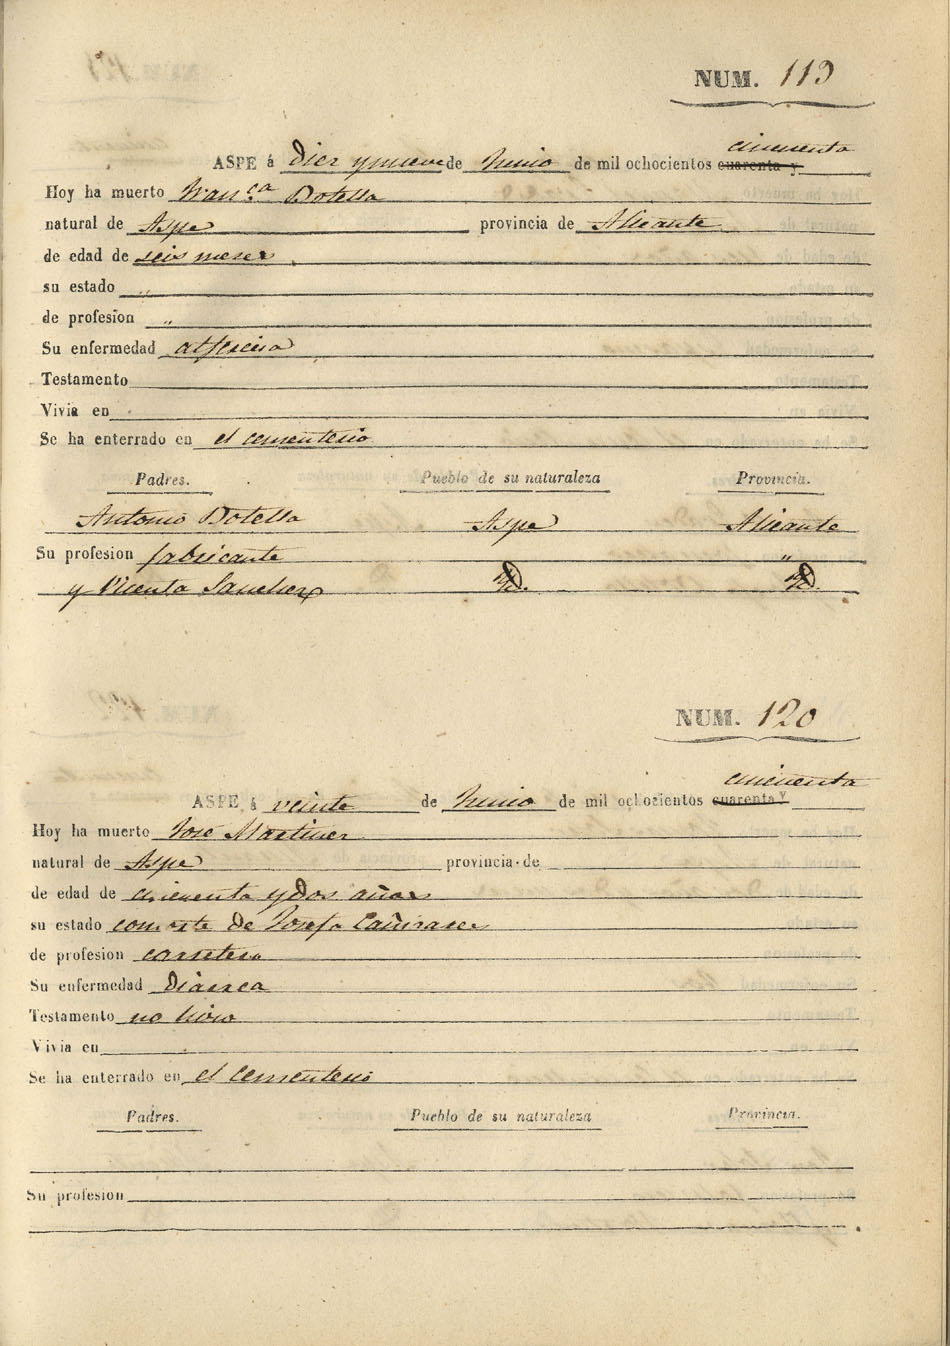 NUM. 119
cincuenta
ASPE á diez y nueve de Junio de mil ochocientos cuarenta y
Hoy ha muerto Fran.ca Botella
natural de Aspe provincia de Alicante
de edad de seis meses
su estado "
de profesion "
Su enfermedad alferecia
Testamento
Vivia en
Se ha enterrado en el cementerio
Padres. Pueblo de su naturaleza Provincia.
Antonio Botella Aspe Alicante
Su profesion fabricante "
y Vicenta Sanchez Yd. Yd.
NUM. 120
cincuenta
ASPE á veinte de Junio de mil ochocientos cuarenta y
Hoy ha muerto José Martinez
natural de Aspe provincia de
de edad de cincuenta y dos años
su estado consorte de Josefa Cañizares
de profesion carretero
Su enfermedad Diarrea
Testamento no hizo
Vivia en
Se ha enterrado en el cementerio
Padres. Pueblo de su naturaleza Provincia.
Su profesion